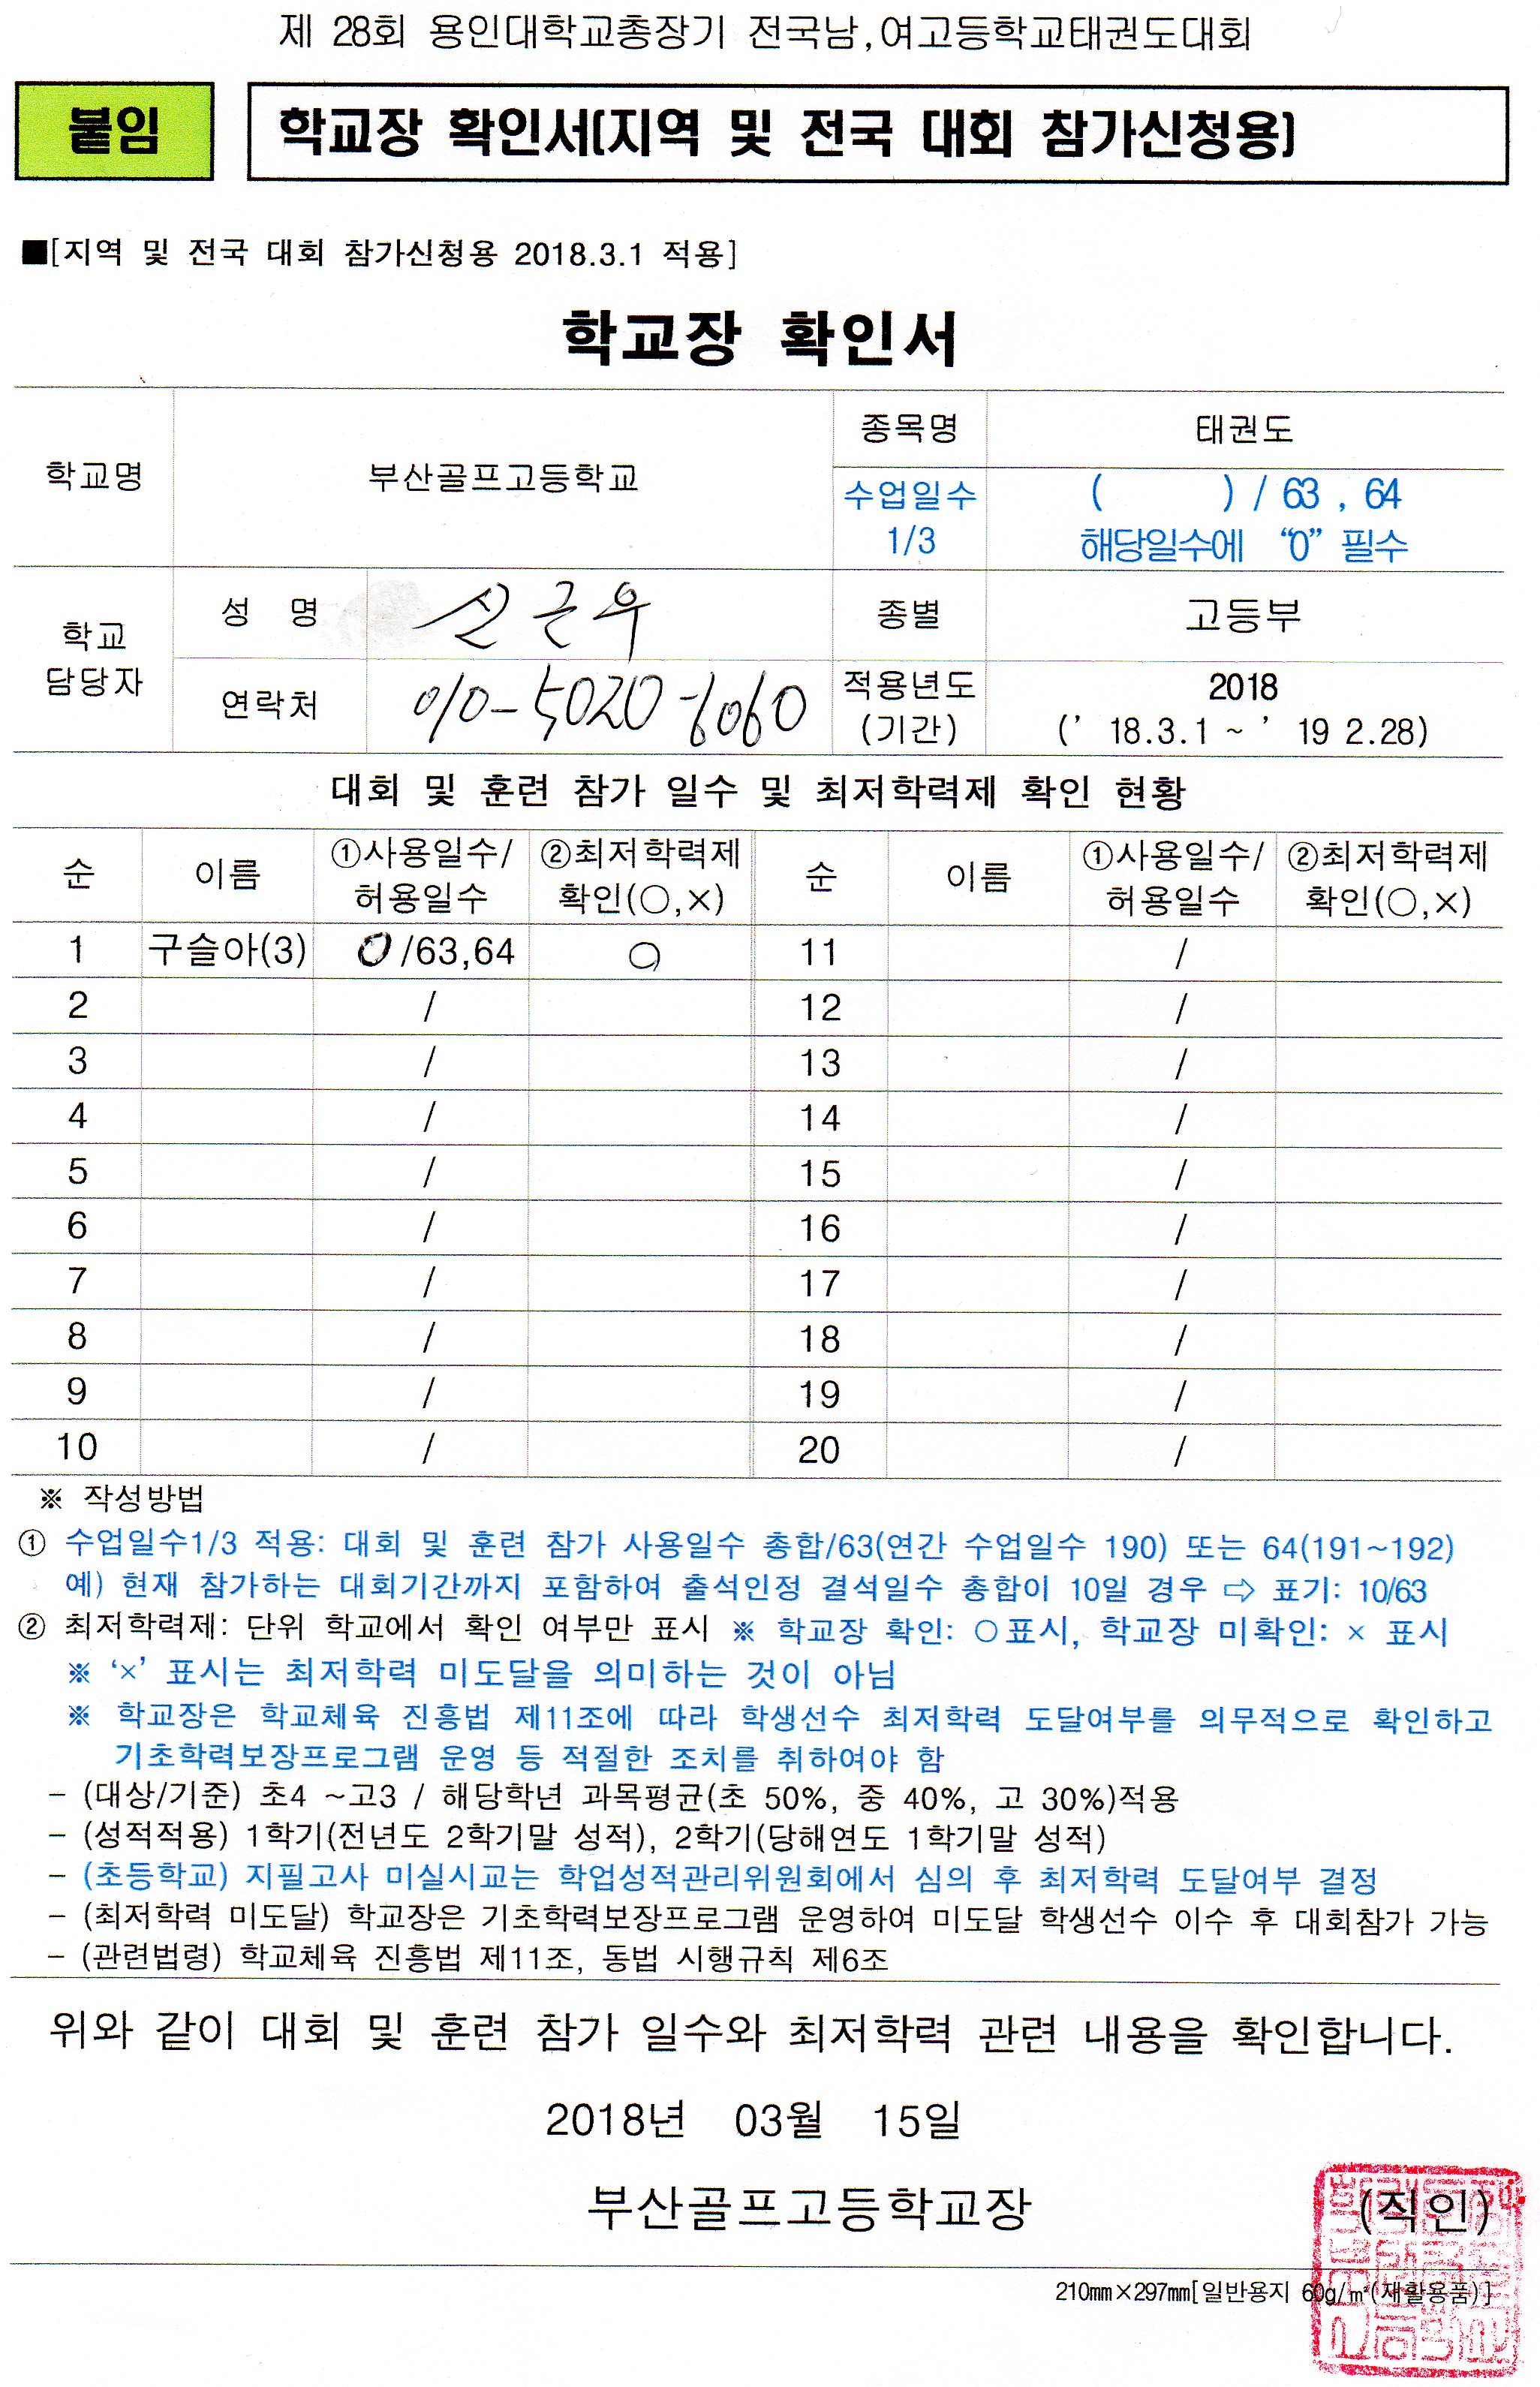 제 28회 용인대학교총장기 전국남,여고등학교태권도대회
붙임
학교장 확인서(지역 및 전국 대회 참가신청용)
■[지역 및 전국 대회 참가신청용 2018.3.1 적용]
학교장 확인서
학교명 부산골프고등학교 종목명 태권도
수업일수 1/3 ( ) / 63 , 64
해당일수에 “0” 필수
학교 담당자 성 명 신근우 종별 고등부
연락처 010-5020-6060 적용년도 (기간) 2018
(’ 18.3.1 ~ ’ 19 2.28)
대회 및 훈련 참가 일수 및 최저학력제 확인 현황
순 이름 ①사용일수/허용일수 ②최저학력제 확인(○,×) 순 이름 ①사용일수/허용일수 ②최저학력제 확인(○,×)
1 구슬아(3) 0/63,64 ○ 11 /
2 / 12 /
3 / 13 /
4 / 14 /
5 / 15 /
6 / 16 /
7 / 17 /
8 / 18 /
9 / 19 /
10 / 20 /
※ 작성방법
① 수업일수1/3 적용: 대회 및 훈련 참가 사용일수 총합/63(연간 수업일수 190) 또는 64(191~192)
예) 현재 참가하는 대회기간까지 포함하여 출석인정 결석일수 총합이 10일 경우 ⇨ 표기: 10/63
② 최저학력제: 단위 학교에서 확인 여부만 표시 ※ 학교장 확인: ○표시, 학교장 미확인: × 표시
※ ‘×’ 표시는 최저학력 미도달을 의미하는 것이 아님
※ 학교장은 학교체육 진흥법 제11조에 따라 학생선수 최저학력 도달여부를 의무적으로 확인하고
기초학력보장프로그램 운영 등 적절한 조치를 취하여야 함
- (대상/기준) 초4 ~고3 / 해당학년 과목평균(초 50%, 중 40%, 고 30%)적용
- (성적적용) 1학기(전년도 2학기말 성적), 2학기(당해연도 1학기말 성적)
- (초등학교) 지필고사 미실시교는 학업성적관리위원회에서 심의 후 최저학력 도달여부 결정
- (최저학력 미도달) 학교장은 기초학력보장프로그램 운영하여 미도달 학생선수 이수 후 대회참가 가능
- (관련법령) 학교체육 진흥법 제11조, 동법 시행규칙 제6조
위와 같이 대회 및 훈련 참가 일수와 최저학력 관련 내용을 확인합니다.
2018년 03월 15일
부산골프고등학교장 (직인)
210㎜×297㎜[일반용지 60g/㎡(재활용품)]